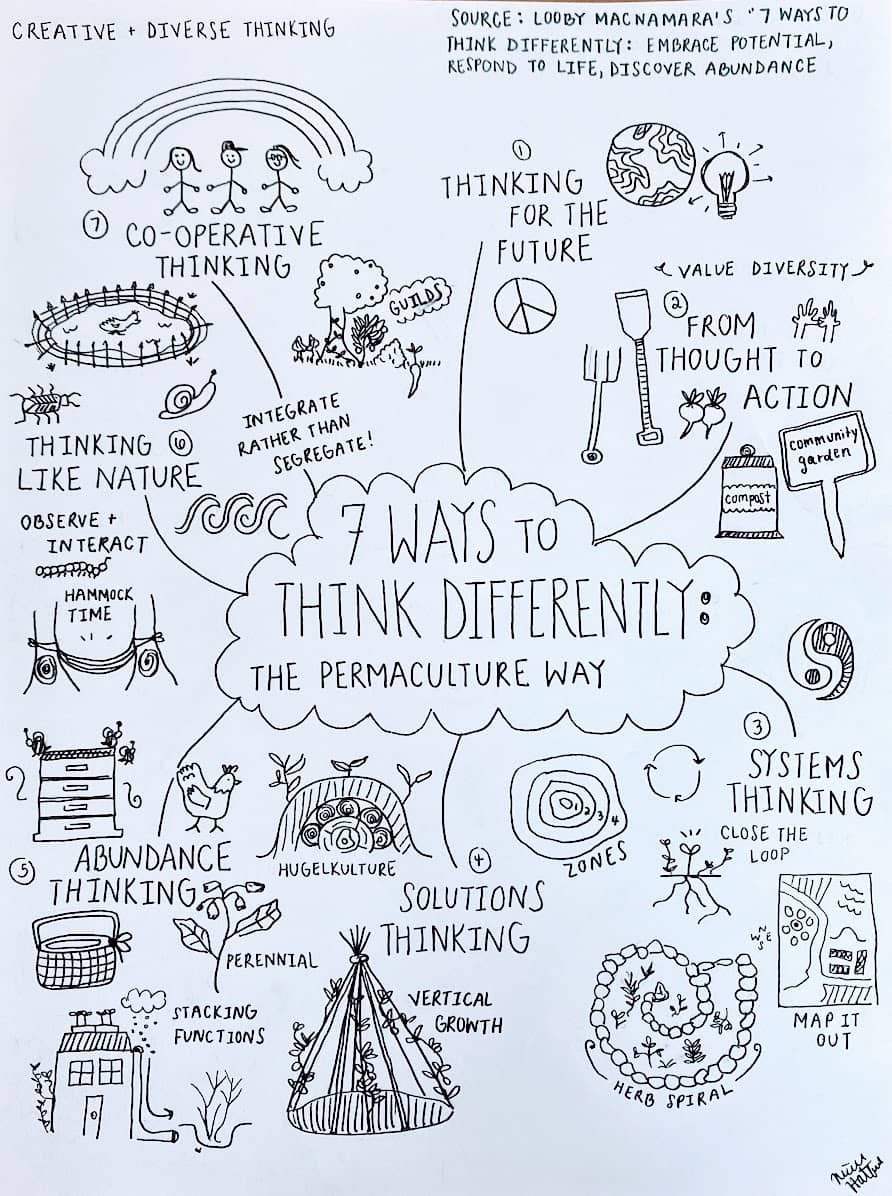 CREATIVE + DIVERSE THINKING
SOURCE: LOOBY MACNAMARA'S "7 WAYS TO
THINK DIFFERENTLY: EMBRACE POTENTIAL,
RESPOND TO LIFE, DISCOVER ABUNDANCE
7 WAYS TO
THINK DIFFERENTLY:
THE PERMACULTURE WAY
1
THINKING
FOR THE
FUTURE
VALUE DIVERSITY
2
FROM
THOUGHT TO
ACTION
community
garden
compost
3
SYSTEMS
THINKING
CLOSE THE
LOOP
1 2 3 4
ZONES
N
W E
S
MAP IT
OUT
HERB SPIRAL
4
SOLUTIONS
THINKING
HUGELKULTURE
VERTICAL
GROWTH
5
ABUNDANCE
THINKING
PERENNIAL
STACKING
FUNCTIONS
6
THINKING
LIKE NATURE
OBSERVE +
INTERACT
HAMMOCK
TIME
7
CO-OPERATIVE
THINKING
GUILDS
INTEGRATE
RATHER THAN
SEGREGATE!